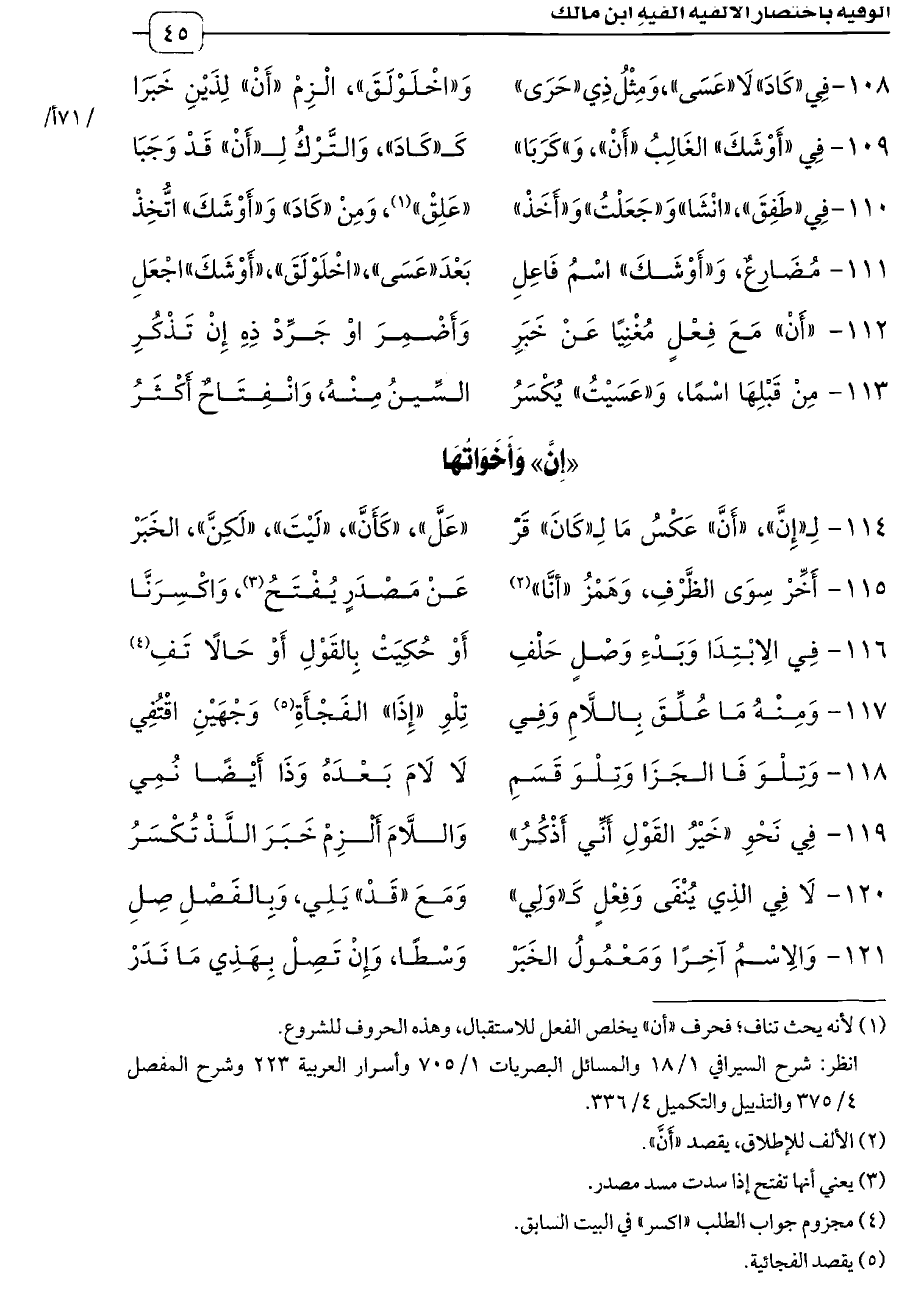 الوفية باختصار الألفية ألفية ابن مالك
٤٥
١٠٨- فِي «كَادَ» لَا «عَسَى»، وَمِثْلُ ذِي «حَرَى» وَ«اخْلَوْلَقَ»، الْزِمْ «أَنْ» لِذَيْنِ خَبَرَا
/٧١أ/
١٠٩- فِي «أَوْشَكَ» الغَالِبُ «أَنْ»، وَ«كَرَبَا» كَـ«كَادَ»، وَالتَّرْكُ لِـ«أَنْ» قَدْ وَجَبَا
١١٠- فِي «طَفِقَ»، «انْشَا» وَ«جَعَلْتُ» وَ«أَخَذْ» «عَلِقْ»(١)، وَمِنْ «كَادَ» وَ«أَوْشَكَ» اتُّخِذْ
١١١- مُضَارِعٌ، وَ«أَوْشَكَ» اسْمُ فَاعِلِ بَعْدَ «عَسَى»، «اخْلَوْلَقَ»، «أَوْشَكَ» اجْعَلِ
١١٢- «أَنْ» مَعَ فِعْلٍ مُغْنِيًا عَنْ خَبَرِ وَأَضْمِرَ اوْ جَرِّدْ ذِهِ إِنْ تَذْكُرِ
١١٣- مِنْ قَبْلِهَا اسْمًا، وَ«عَسَيْتُ» يُكْسَرُ السِّينُ مِنْهُ، وَانْفِتَاحٌ أَكْثَرُ
«إِنَّ» وَأَخَوَاتُهَا
١١٤- لِـ«إِنَّ»، «أَنَّ» عَكْسُ مَا لِـ«كَانَ» قَرْ «عَلَّ»، «كَأَنَّ»، «لَيْتَ»، «لَكِنَّ»، الخَبَرْ
١١٥- أَخِّرْ سِوَى الظَّرْفِ، وَهَمْزُ «أَنَّا»(٢) عَنْ مَصْدَرٍ يُفْتَحُ(٣)، وَاكْسِرَنَّا
١١٦- فِي الِابْتِدَا وَبَدْءِ وَصْلٍ حَلْفِ أَوْ حُكِيَتْ بِالقَوْلِ أَوْ حَالًا تَفِ(٤)
١١٧- وَمِنْهُ مَا عُلِّقَ بِاللَّامِ وَفِي تِلْوِ «إِذَا» الفَجْأَةِ(٥) وَجْهَيْنِ اقْتُفِي
١١٨- وَتِلْوَ فَا الجَزَا وَتِلْوَ قَسَمِ لَا لَامَ بَعْدَهُ وَذَا أَيْضًا نُمِي
١١٩- فِي نَحْوِ «خَيْرُ القَوْلِ أَنِّي أَذْكُرُ» وَاللَّامَ أَلْزِمْ خَبَرَ اللَّذْ تُكْسَرُ
١٢٠- لَا فِي الذِي يُنْفَى وَفِعْلٍ كَـ«وَلِي» وَمَعَ «قَدْ» يَلِي، وَبِالفَصْلِ صِلِ
١٢١- وَالِاسْمُ آخِرًا وَمَعْمُولُ الخَبَرْ وَسْطًا، وَإِنْ تَصِلْ بِهَذِي مَا نَدَرْ
(١) لأنه يحث تناف؛ فحرف «أن» يخلص الفعل للاستقبال، وهذه الحروف للشروع.
انظر: شرح السيرافي ١/ ١٨ والمسائل البصريات ١/ ٧٠٥ وأسرار العربية ٢٢٣ وشرح المفصل
٤/ ٣٧٥ والتذييل والتكميل ٤/ ٣٣٦.
(٢) الألف للإطلاق، يقصد «أَنَّ».
(٣) يعني أنها تفتح إذا سدت مسد مصدر.
(٤) مجزوم جواب الطلب «اكسر» في البيت السابق.
(٥) يقصد الفجائية.